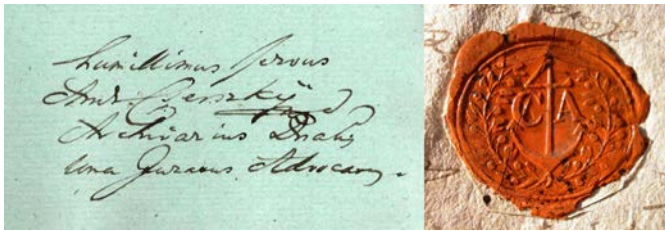 humillimus servus
And. Cserszky
Archivarius
una Juratus Advocatus
C A